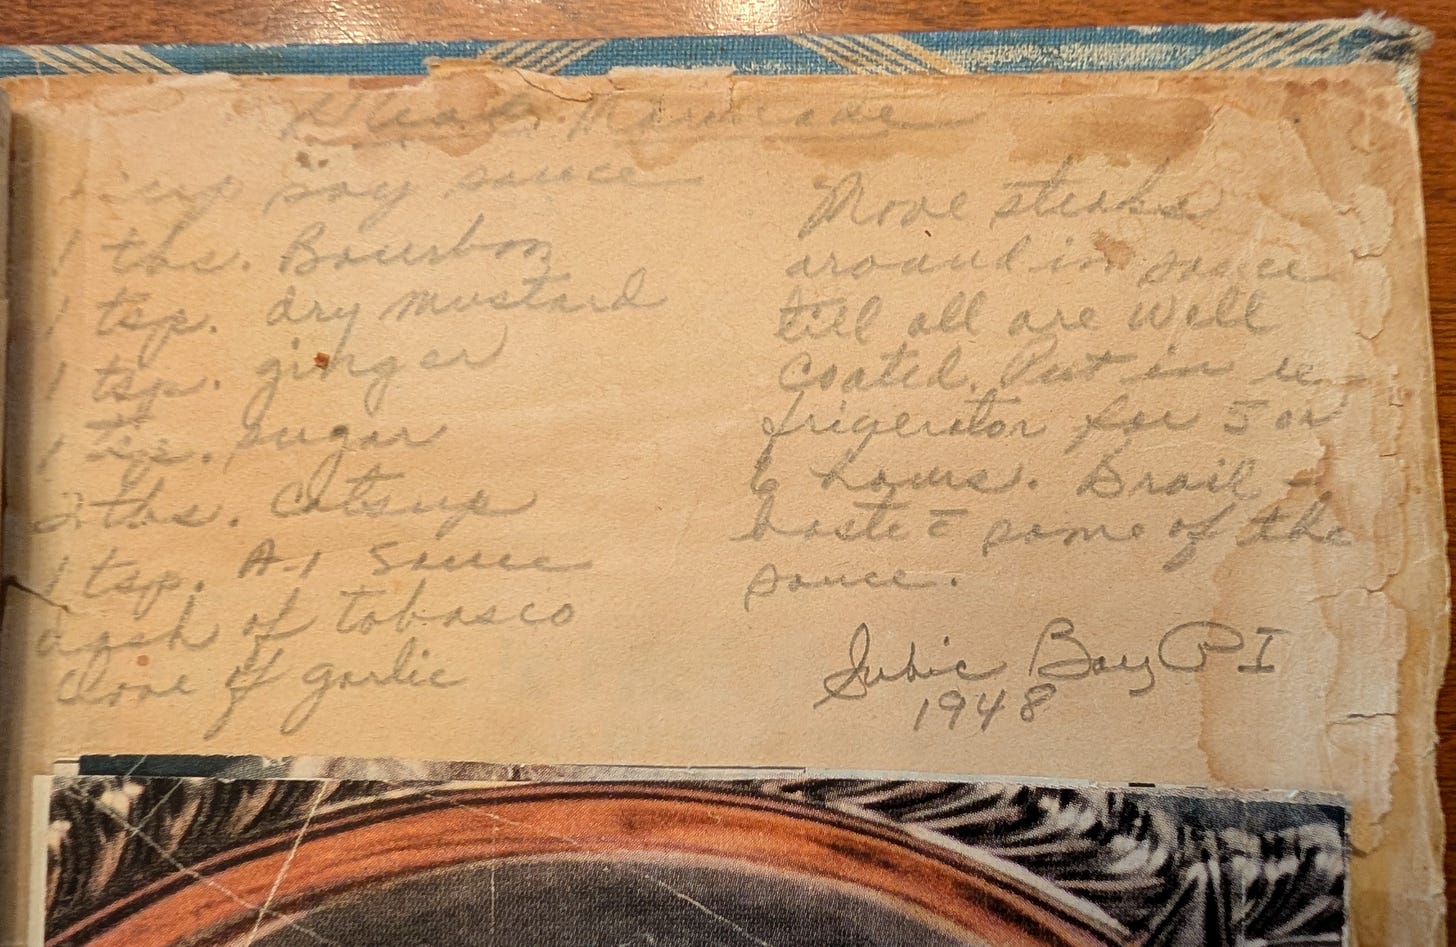 Steak Marinade
1 cup soy sauce
1 tbs. Bourbon
1 tsp. dry mustard
1 tsp. ginger
1 tsp. sugar
2 tbs. Catsup
1 tsp. A-1 Sauce
dash of tobasco
Clove of garlic
Move steaks
around in sauce
till all are well
coated. Put in re-
frigerator for 5 or
6 hours. Broil -
baste c̄ some of the
sauce.
Subic Bay PI
1948